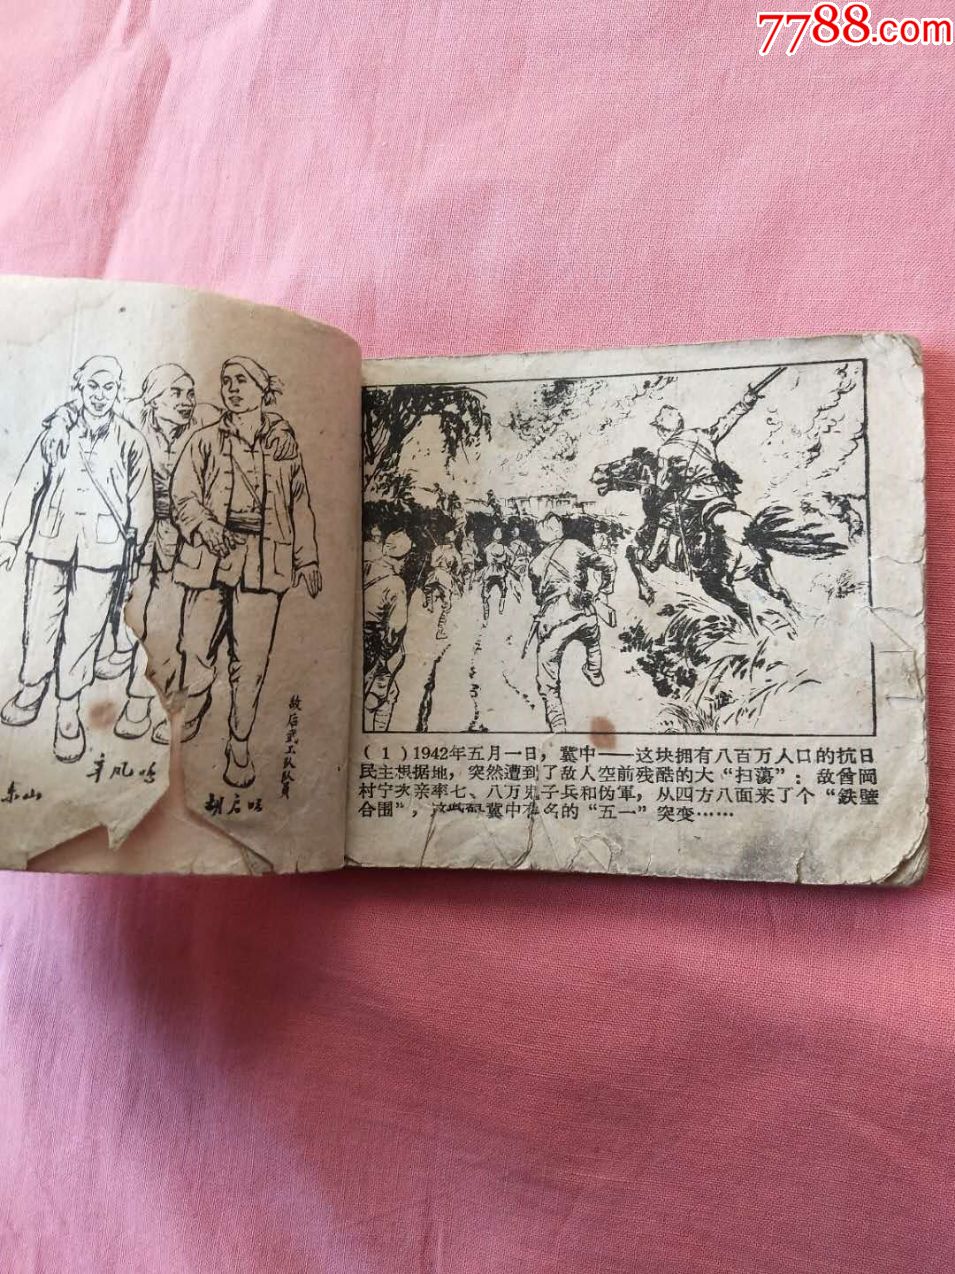 7788.com
东山
辛凤鸣
胡启明
敌后武工队队员
(1)1942年五月一日，冀中——这块拥有八百万人口的抗日
民主根据地，突然遭到了敌人空前残酷的大“扫荡”：敌酋冈
村宁次亲率七、八万鬼子兵和伪軍，从四方八面来了个“鉄壁
合围”，冀中有名的“五一”突变……